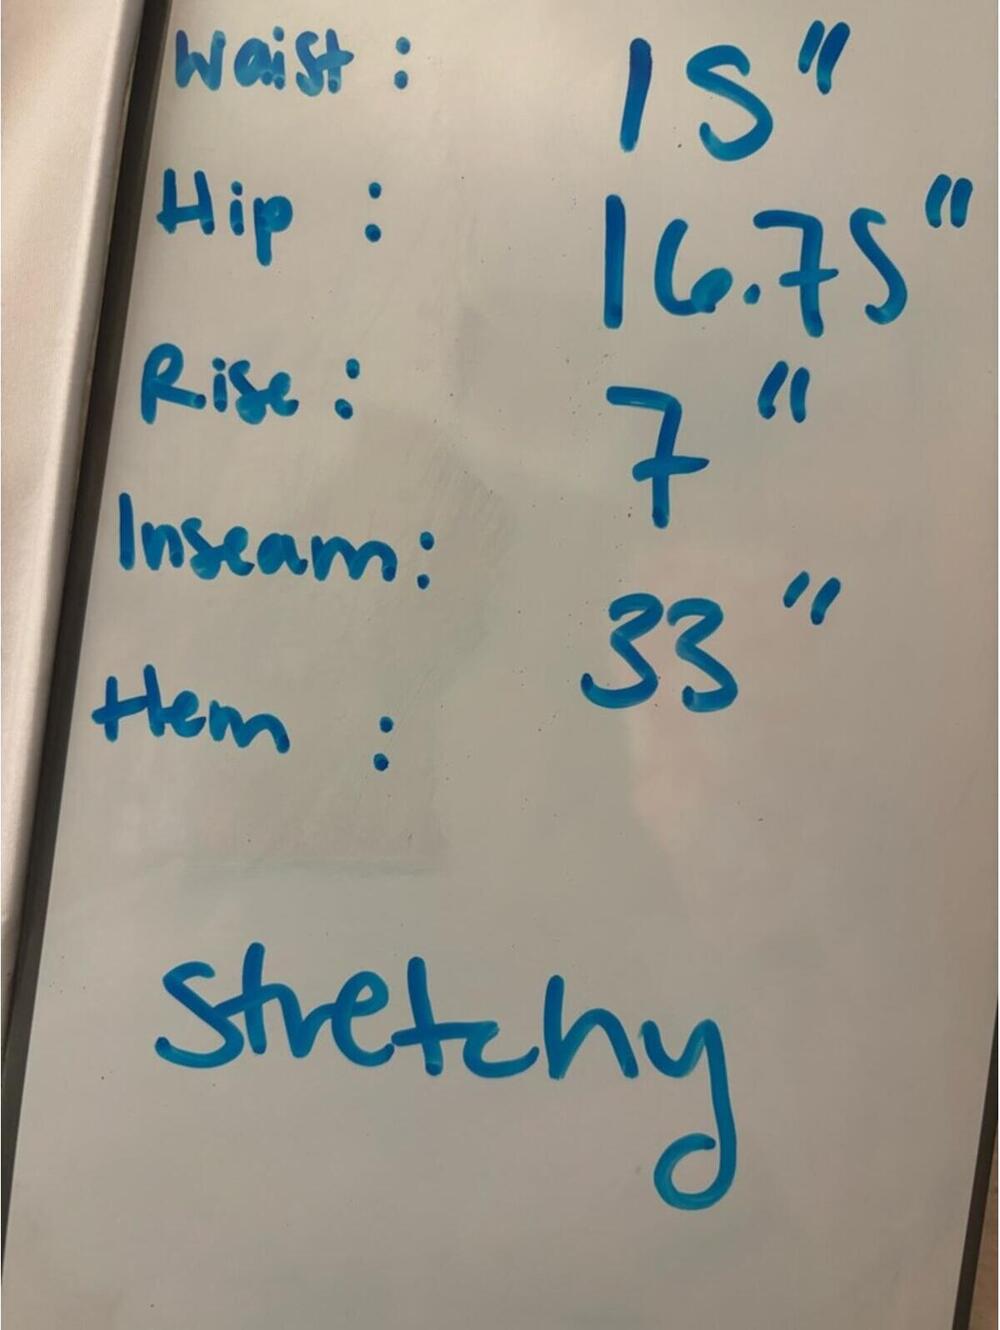 Waist: 15"
Hip: 16.75"
Rise: 7"
Inseam: 33"
Hem:
Stretchy